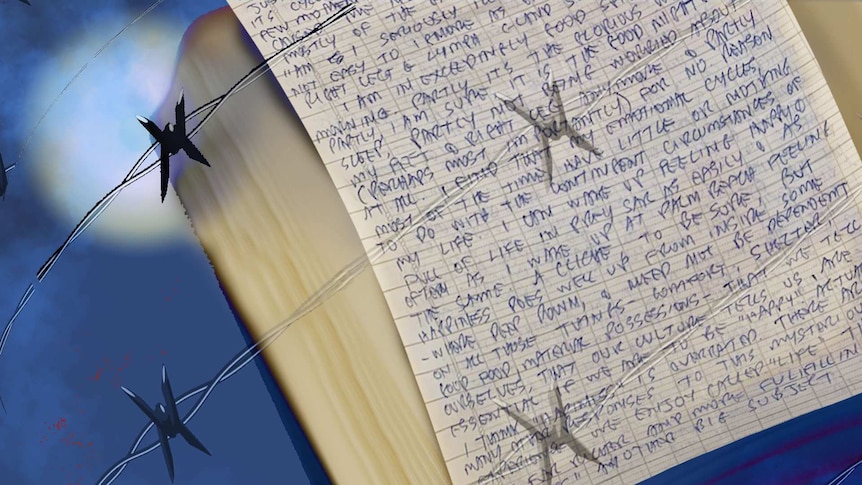 OF THE
I SERIOUSLY
NOT EASY TO IGNORE AS
RIGHT LEG & LYMPH GLAND
I AM IN EXCEEDINGLY GOOD
MORNING. PARTLY IT'S THE GLORIOUS
PARTLY I AM SURE IT IS THE GOOD NIGHT
SLEEP, PARTLY NOT BEING WORRIED ABOUT
MY FEET & RIGHT LEG ANYMORE & PARTLY
(PERHAPS MOST IMPORTANTLY) FOR NO REASON
AT ALL. I FIND THAT MY EMOTIONAL CYCLES
MOST OF THE TIME HAVE LITTLE OR NOTHING
TO DO WITH THE CONTINGENT CIRCUMSTANCES OF
MY LIFE. I CAN WAKE UP FEELING HAPPY &
FULL OF LIFE IN PREY SAR AS EASILY & AS
OFTEN AS I WAKE UP AT PALM BEACH FEELING
THE SAME. A CLICHE TO BE SURE, BUT
HAPPINESS DOES WELL UP FROM INSIDE, SOME
-WHERE DEEP DOWN, & NEED NOT BE DEPENDENT
ON ALL THOSE THINGS - COMFORT, SHELTER
GOOD FOOD MATERIAL POSSESSIONS - THAT WE TELL
OURSELVES, THAT OUR CULTURE TELLS US, ARE
ESSENTIAL IF WE ARE TO BE "HAPPY". ACTUA
I THINK HAPPINESS IS OVERRATED. THERE ARE
MANY OTHER RESPONSES TO THIS MYSTERIOU
EXPERIENCE WE ENJOY CALLED "LIFE" T
FAR RICHER AND MORE FULFILLIN
ANOTHER BIG SUBJECT